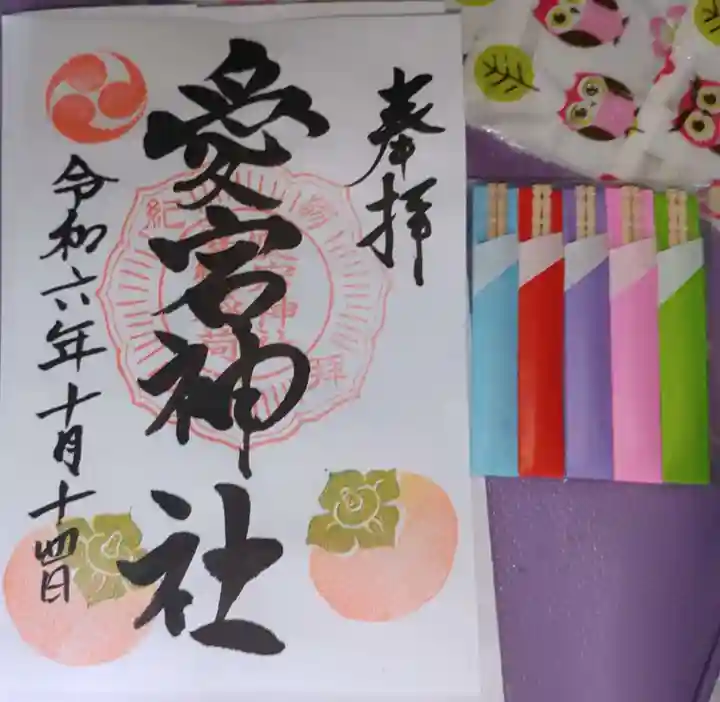 奉拝
愛宕神社
令和六年十月十四日